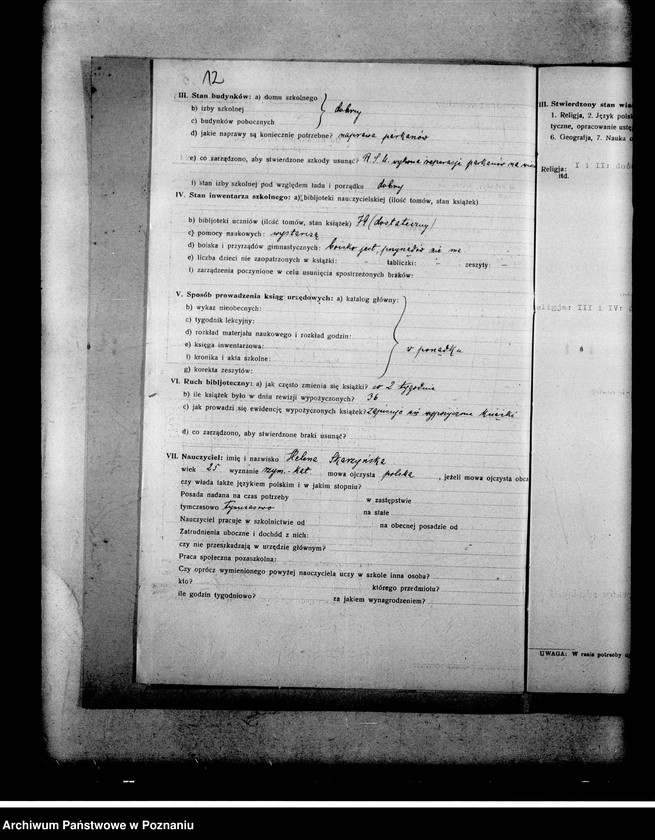 12
III. Stan budynków: a) domu szkolnego
b) izby szkolnej
c) budynków pobocznych
dobry
d) jakie naprawy są koniecznie potrzebne? naprawa parkanów
e) co zarządzono, aby stwierdzone szkody usunąć? R.S.M. wykona reparację parkanów na
f) stan izby szkolnej pod względem ładu i porządku dobry
IV. Stan inwentarza szkolnego: a) bibljoteki nauczycielskiej (ilość tomów, stan książek)
b) bibljoteki uczniów (ilość tomów, stan książek) 74 (dostateczny)
c) pomocy naukowych: wystarczą
d) boiska i przyrządów gimnastycznych: boisko jest, przyrządów nie ma
e) liczba dzieci nie zaopatrzonych w książki: - tabliczki: - zeszyty: -
f) zarządzenia poczynione w celu usunięcia spostrzeżonych braków:
V. Sposób prowadzenia ksiąg urzędowych: a) katalog główny:
b) wykaz nieobecnych:
c) tygodnik lekcyjny:
d) rozkład materjału naukowego i rozkład godzin:
e) księga inwentarzowa:
f) kronika i akta szkolne:
g) korekta zeszytów:
w porządku
VI. Ruch bibljoteczny: a) jak często zmienia się książki? co 2 tygodnie
b) ile książek było w dniu rewizji wypożyczonych? 36
c) jak prowadzi się ewidencję wypożyczonych książek? Zapisuje się wypożyczone książki
d) co zarządzono, aby stwierdzone braki usunąć?
VII. Nauczyciel: imię i nazwisko Helena Skarzyńska
wiek 25 wyznanie rzym.-kat. mowa ojczysta polska, jeżeli mowa ojczysta obca
czy włada także językiem polskim i w jakim stopniu?
Posada nadana na czas potrzeby w zastępstwie
tymczasowo tymczasowo na stałe
Nauczyciel pracuje w szkolnictwie od na obecnej posadzie od
Zatrudnienia uboczne i dochód z nich:
czy nie przeszkadzają w urzędzie głównym?
Praca społeczna pozaszkolna:
Czy oprócz wymienionego powyżej nauczyciela uczy w szkole inna osoba?
kto? którego przedmiotu?
ile godzin tygodniowo? za jakiem wynagrodzeniem?
III. Stwierdzony stan
1. Religja, 2. Język
tyczne, opracowanie
6. Geografja, 7. Nauka
Religja: I i II:
itd.
III i IV:
UWAGA: W razie potrzeby
Archiwum Państwowe w Poznaniu